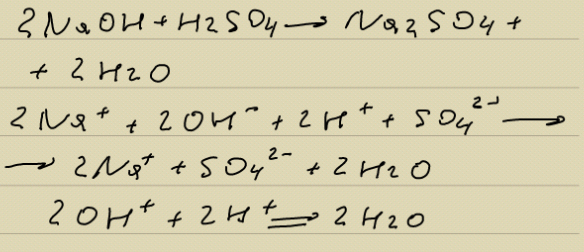 2NaOH + H2SO4 → Na2SO4 +
+ 2H2O
2Na⁺ + 2OH⁻ + 2H⁺ + SO4²⁻ →
→ 2Na⁺ + SO4²⁻ + 2H2O
2OH⁺ + 2H⁺ ⇒ 2H2O